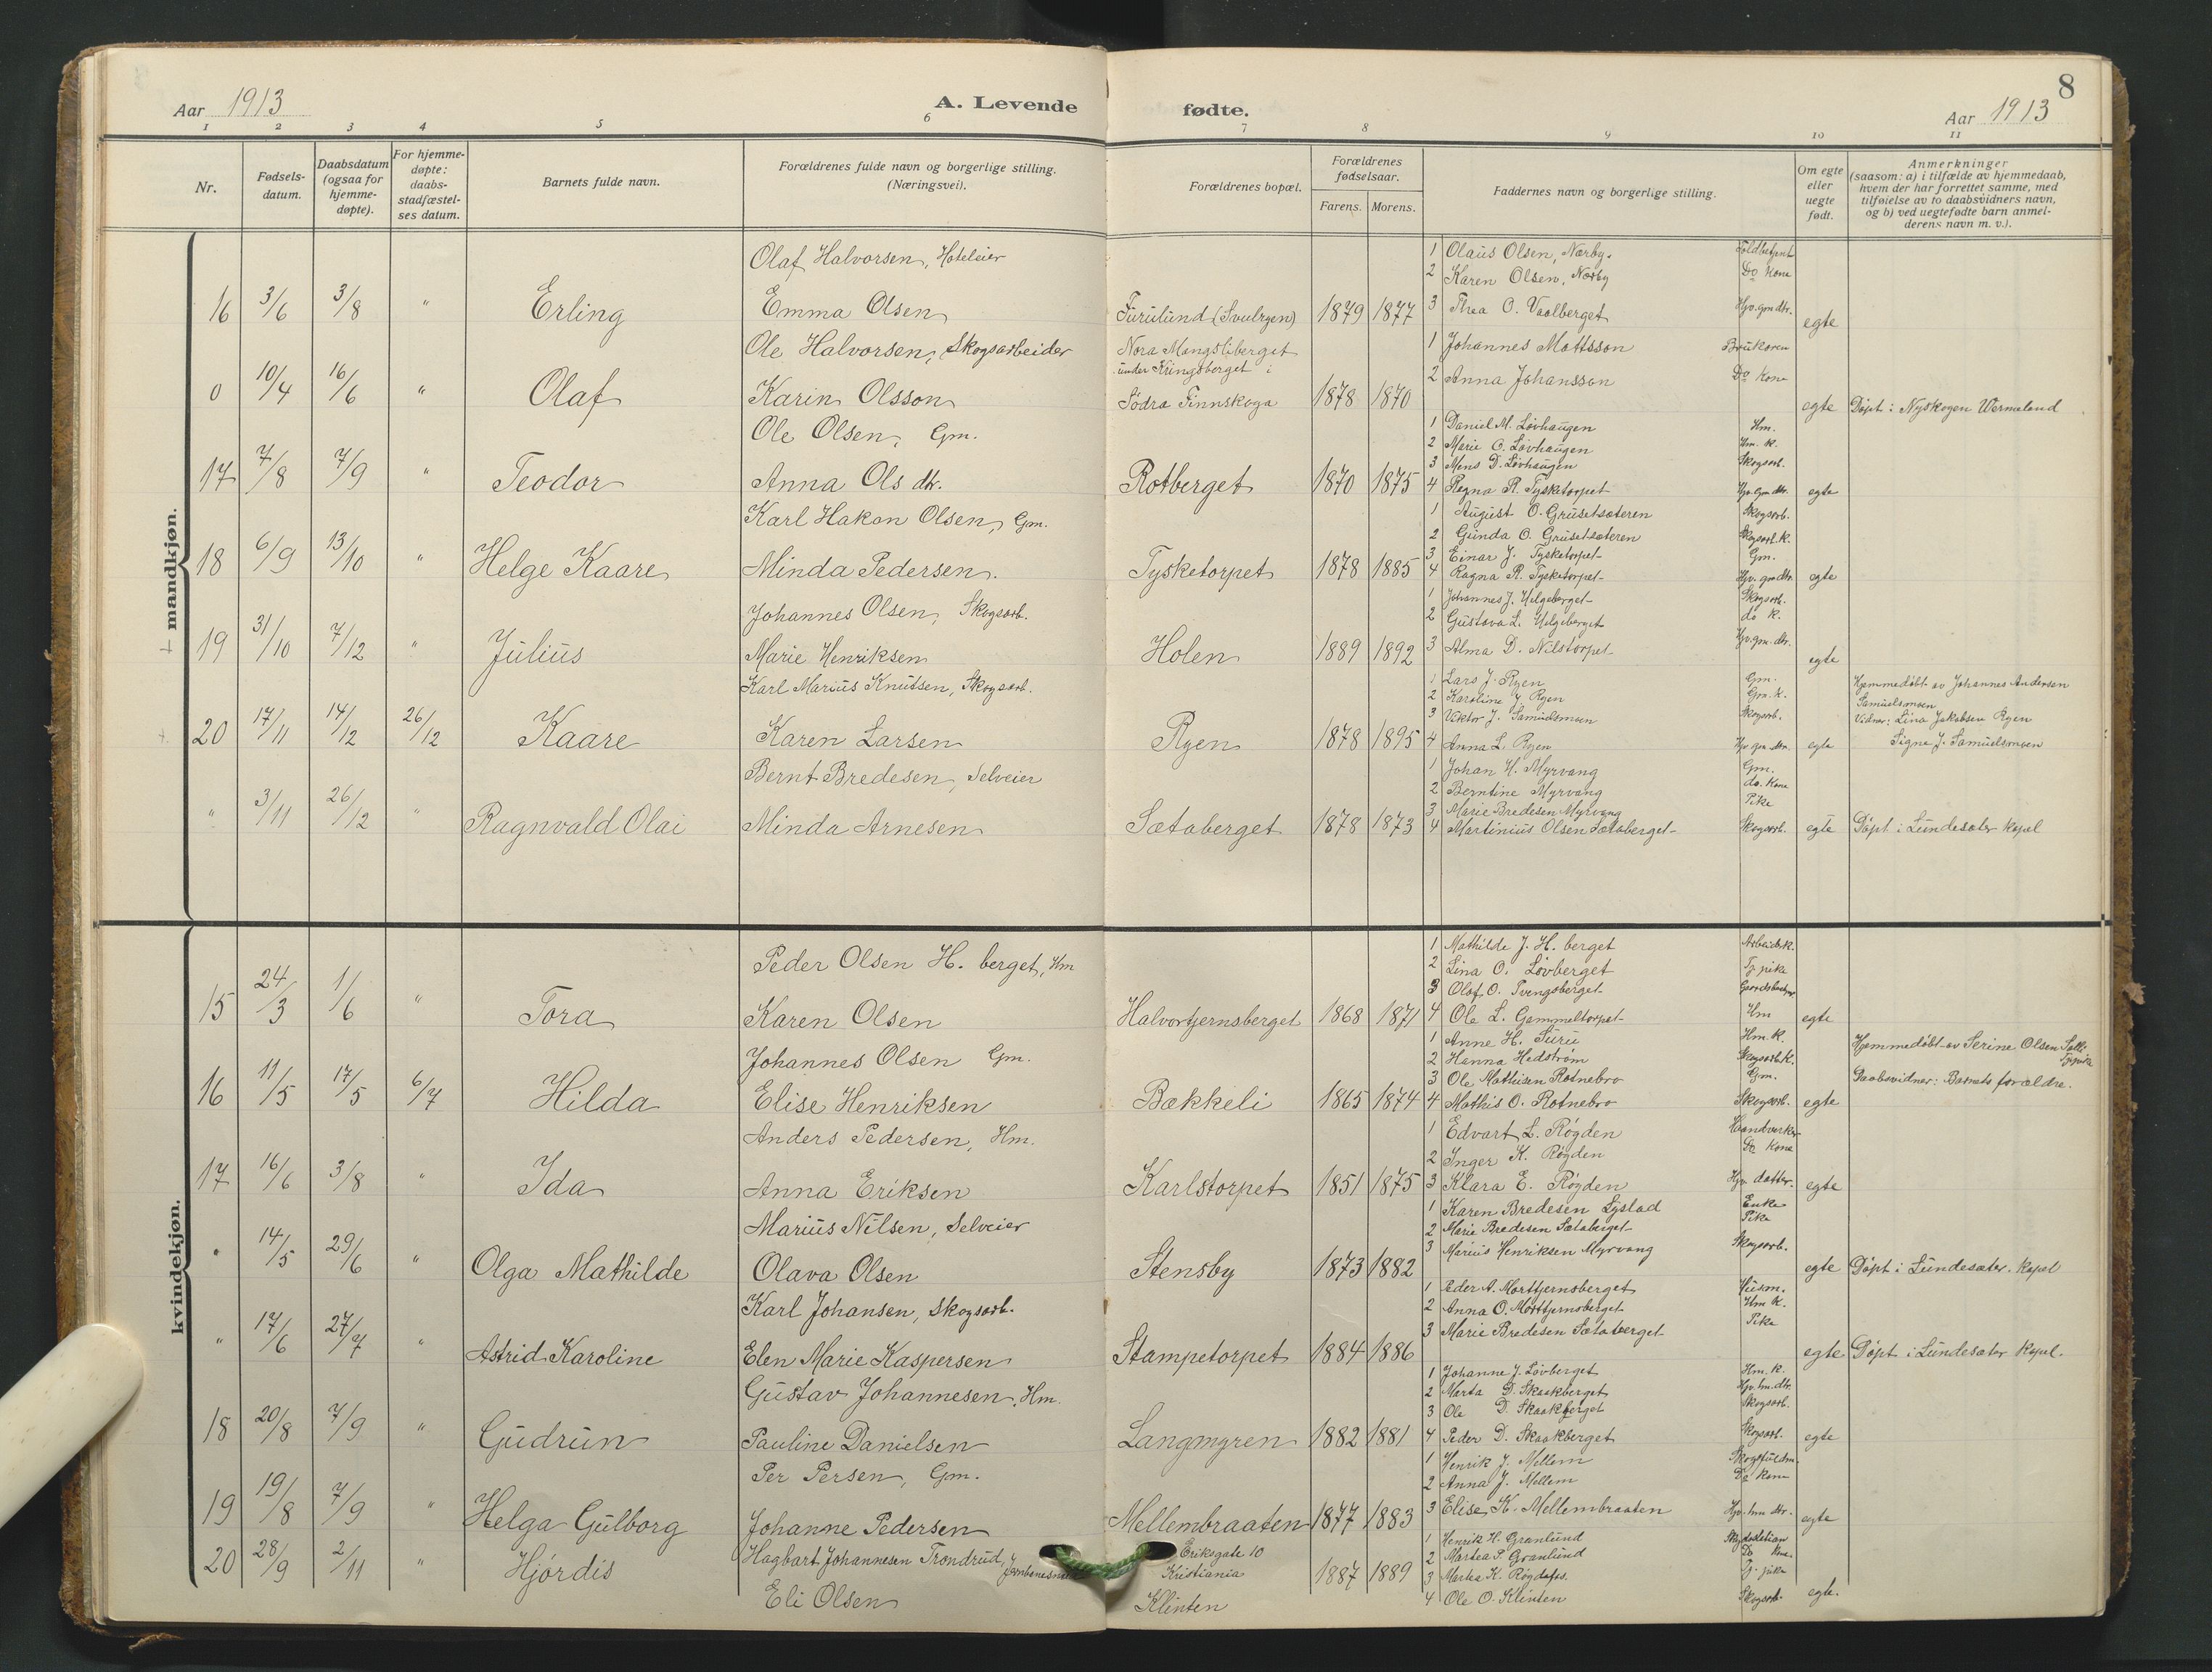 8
Aar 1913
A. Levende
fødte.
Aar 1913
1 2 3 4 5 6 7 8 9 10 11
Nr.
Fødsels-
datum.
Daabsdatum
(ogsaa for
hjemme-
døpte).
For hjemme-
døpte:
daabs-
stadfæstel-
ses datum.
Barnets fulde navn.
Forældrenes fulde navn og borgerlige stilling.
(Næringsvei).
Forældrenes bopæl.
Forældrenes
fødselsaar.
Farens. Morens.
Faddernes navn og borgerlige stilling.
Om egte
eller
uegte
født.
Anmerkninger
(saasom: a) i tilfælde av hjemmedaab,
hvem der har forrettet samme, med
tilføielse av to daabsvidners navn,
og b) ved uegtefødte barn anmel-
derens navn m. v.).
mandkjøn.
Olaf Halvorsen, Hoteleier
16 3/6 3/8 " Erling Emma Olsen Furulund (Svulryen) 1879 1877 egte
1 Olaus Olsen, Nørby.
2 Karen Olsen, Nørby Do Kone
3 Thea O. Vaalberget Hjv. gm dtr.
Ole Halvorsen, Skogsarbeider
Nora Mangsliberget
under Kringsberget i
0 10/4 16/6 " Olaf Karin Olsson Södra Finnskoga 1878 1870 egte Døpt i Nyskogen Wermeland
1 Johannes Mattsson Brukaren
2 Anna Johansson Do Kone
Ole Olsen, Gm.
17 7/8 7/9 " Teodor Anna Ols dtr. Rotberget 1870 1875 egte
1 Daniel M. Løvhaugen Hm.
2 Marie O. Løvhaugen Hm. K.
3 Mens D. Løvhaugen Skogsarb.
4 Ragna R. Tysketorpet Hjv. gm dtr.
Karl Hakon Olsen, Gm.
18 6/9 13/10 " Helge Kaare Minda Pedersen. Tysketorpet 1878 1885 egte
1 August O. Grusetsæteren Skogsarb.
2 Gunda O. Grusetsæteren Skogsarb. K.
3 Einar J. Tysketorpet Gm.
4 Ragna R. Tysketorpet Hjv. gm dtr.
Johannes Olsen, Skogsarb.
19 31/10 7/12 " Julius Marie Henriksen Holen 1889 1892 egte
1 Johannes J. Helgeberget Skogsarb.
2 Gustava L. Helgeberget do K.
3 Alma D. Nilstorpet Hjv. gm. dtr.
Karl Marius Knutsen, Skogsarb.
20 17/11 14/12 26/12 Kaare Karen Larsen Ryen 1878 1895 egte
1 Lars J. Ryen Gm.
2 Karoline J. Ryen Gm. K.
3 Viktor J. Samuelsmoen Skogsarb.
4 Anna L. Ryen Hjv. gm. dtr.
Hjemmedøbt av Johannes Andersen
Samuelsmoen
Vidner: Lina Jakobsen Ryen
Signe J. Samuelsmoen
Bernt Bredesen, Selveier
" 3/11 26/12 " Ragnvald Olai Minda Arnesen Sætaberget 1878 1873 egte Døpt i Lundesæter kapel
1 Johan H. Myrvang Gm.
2 Berntine Myrvang do. Kone
3 Marie Bredesen Myrvang Pike
4 Martinius Olsen Sætaberget Skogsarb.
kvindekjøn.
Peder Olsen H. berget, Hm
15 24/3 1/6 " Tora Karen Olsen Halvortjernsberget 1868 1871 egte
1 Mathilde J. H. berget Arbeidsk.
2 Lina O. Løvberget Tj pike
3 Olaf O. Tvengsberget
4 Ole L. Gammeltorpet Hm
Johannes Olsen Gm.
16 11/5 17/5 6/7 Hilda Elise Henriksen Bækkeli 1865 1874 egte
1 Anne H. Furu Hm. K.
2 Hanna Hedstrøm Skogsarb. K.
3 Ole Mathisen Rotnebro Gm.
4 Mathis O. Rotnebro Skogsarb.
Hjemmedøbt av Serine Olsen
Tjpike
Daabsvidner: Barnets forældre.
Anders Pedersen, Hm.
17 16/6 3/8 " Ida Anna Eriksen Karlstorpet 1851 1875 egte
1 Edvart L. Røgden Haandverker
2 Inger K. Røgden Do Kone
3 Klara E. Røgden Hjv. datter.
Marius Nilsen, Selveier
" 14/5 29/6 " Olga Mathilde Olava Olsen Stensby 1873 1882 egte Døpt i Lundesæter. kapel
1 Karen Bredesen Lystad Enke
2 Marie Bredesen Sætaberget Pike
3 Marius Henriksen Myrvang Skogsarb.
Karl Johansen, Skogsarb.
" 17/6 27/7 " Astrid Karoline Elen Marie Kaspersen Stampetorpet 1884 1886 egte Døpt i Lundesæter kapel.
1 Peder A. Morttjernsberget Husm.
2 Anna O. Morttjernsberget Hm K.
3 Marie Bredesen Sætaberget Pike
Gustav Johannesen, Hm.
18 20/8 7/9 " Gudrun Pauline Danielsen Langmyren 1882 1881 egte
1 Johanne J. Løvberget Hm. K.
2 Marta D. Skaakberget Hjv. hm. dtr.
3 Ole D. Skaakberget Skogsarb.
4 Peder D. Skaakberget Skogsarb.
Per Persen, Gm.
19 19/8 7/9 " Helga Gulborg Johanne Pedersen Mellembraaten 1877 1883 egte
1 Henrik J. Mellem Skogsfuldm.
2 Anna J. Mellem Do Kone
3 Elise K. Mellembraaten Hjv. hm dtr.
Hagbart Johannesen Trondrud,
Eriksgate 10
Kristiania
20 28/9 2/11 " Hjørdis Eli Olsen Klinten 1887 1889 egte.
1 Henrik H. Granlund
2 Martea P. Granlund Do Kone.
3 Martea K. Røgdafos. Tj. pike
4 Ole O. Klinten Skogsarb.